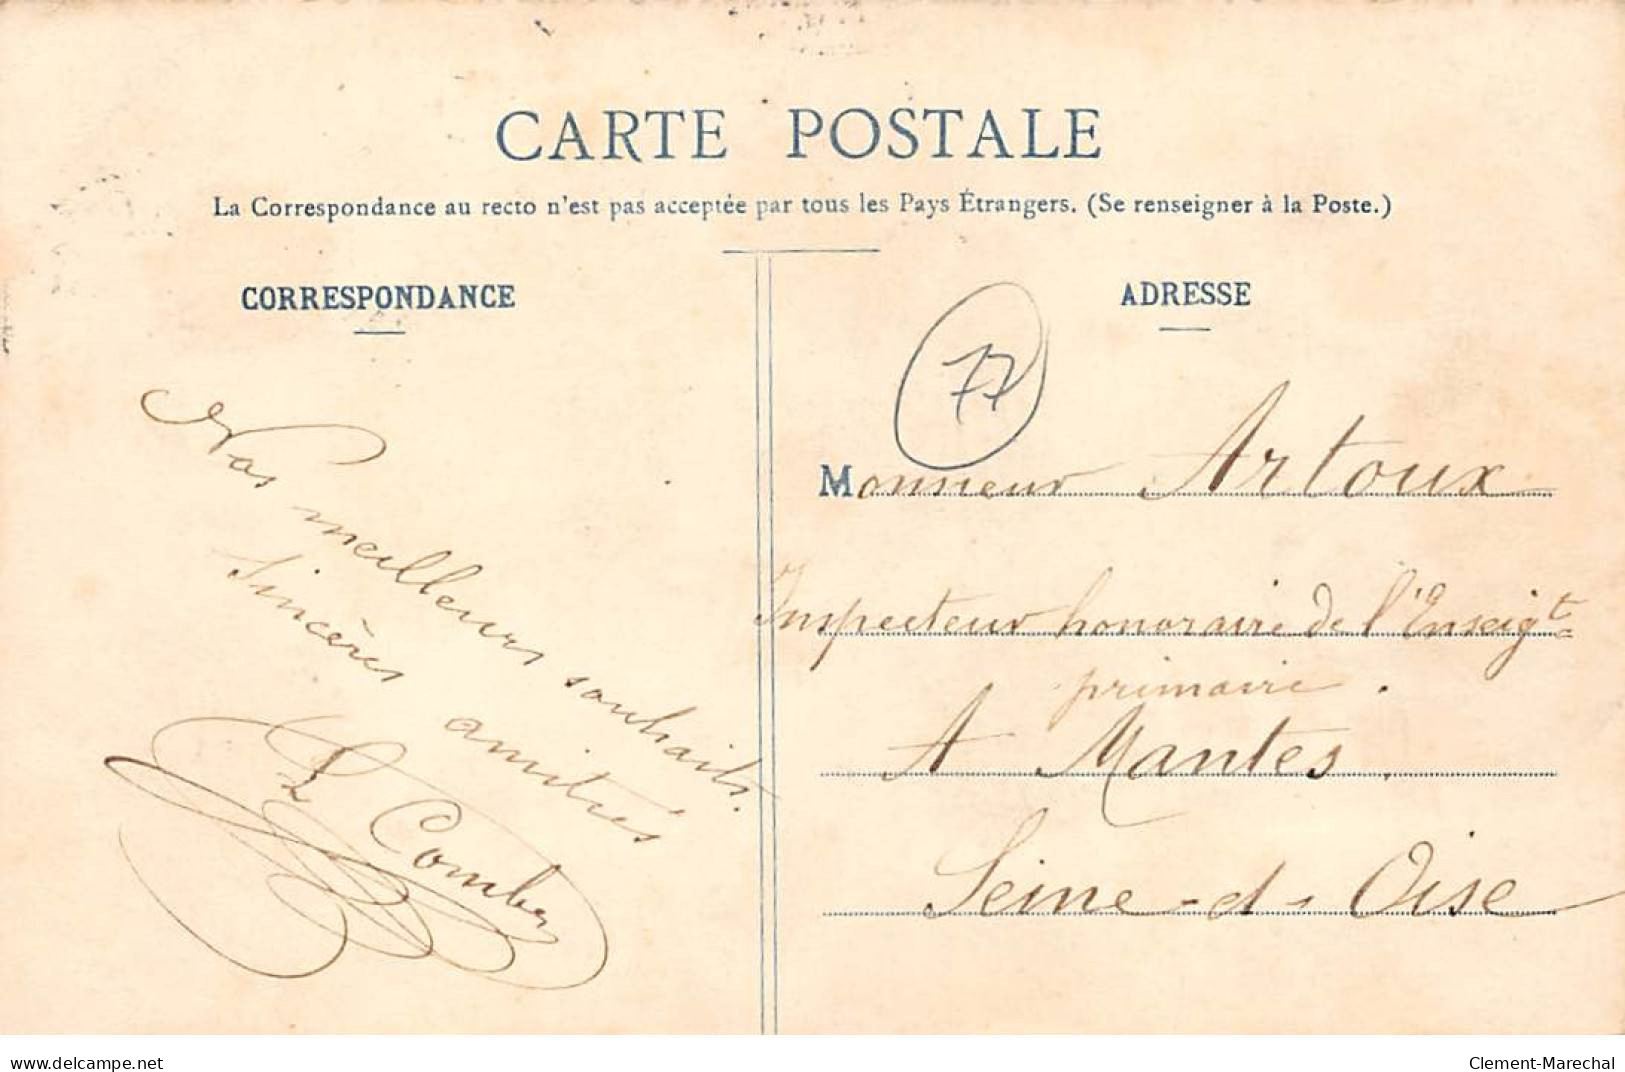 CARTE POSTALE
La Correspondance au recto n'est pas acceptée par tous les Pays Étrangers. (Se renseigner à la Poste.)
CORRESPONDANCE
Nos meilleurs souhaits.
Sincères amitiés
L Combes
ADRESSE
77
Monsieur Artoux
Inspecteur honoraire de l'Enseigt
primaire.
A Mantes.
Seine-et-Oise
www.delcampe.net
Clement-Marechal